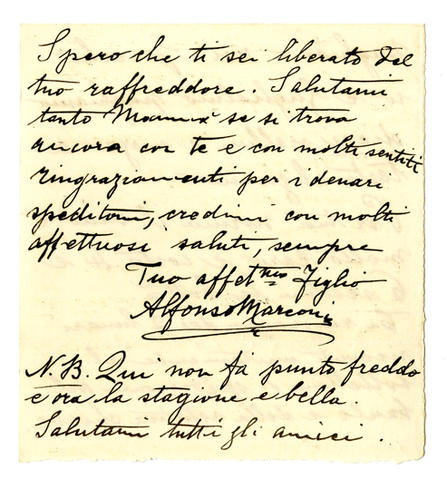 Spero che ti sei liberato del
tuo raffreddore. Salutami
tanto Mamma se si trova
ancora con te e con molti sentiti
ringraziamenti per i denari
speditomi, credimi con molti
affettuosi saluti, sempre
Tuo affet.mo Figlio
Alfonso Marconi
N.B. Qui non fa punto freddo
e ora la stagione e bella.
Salutami tutti gli amici.